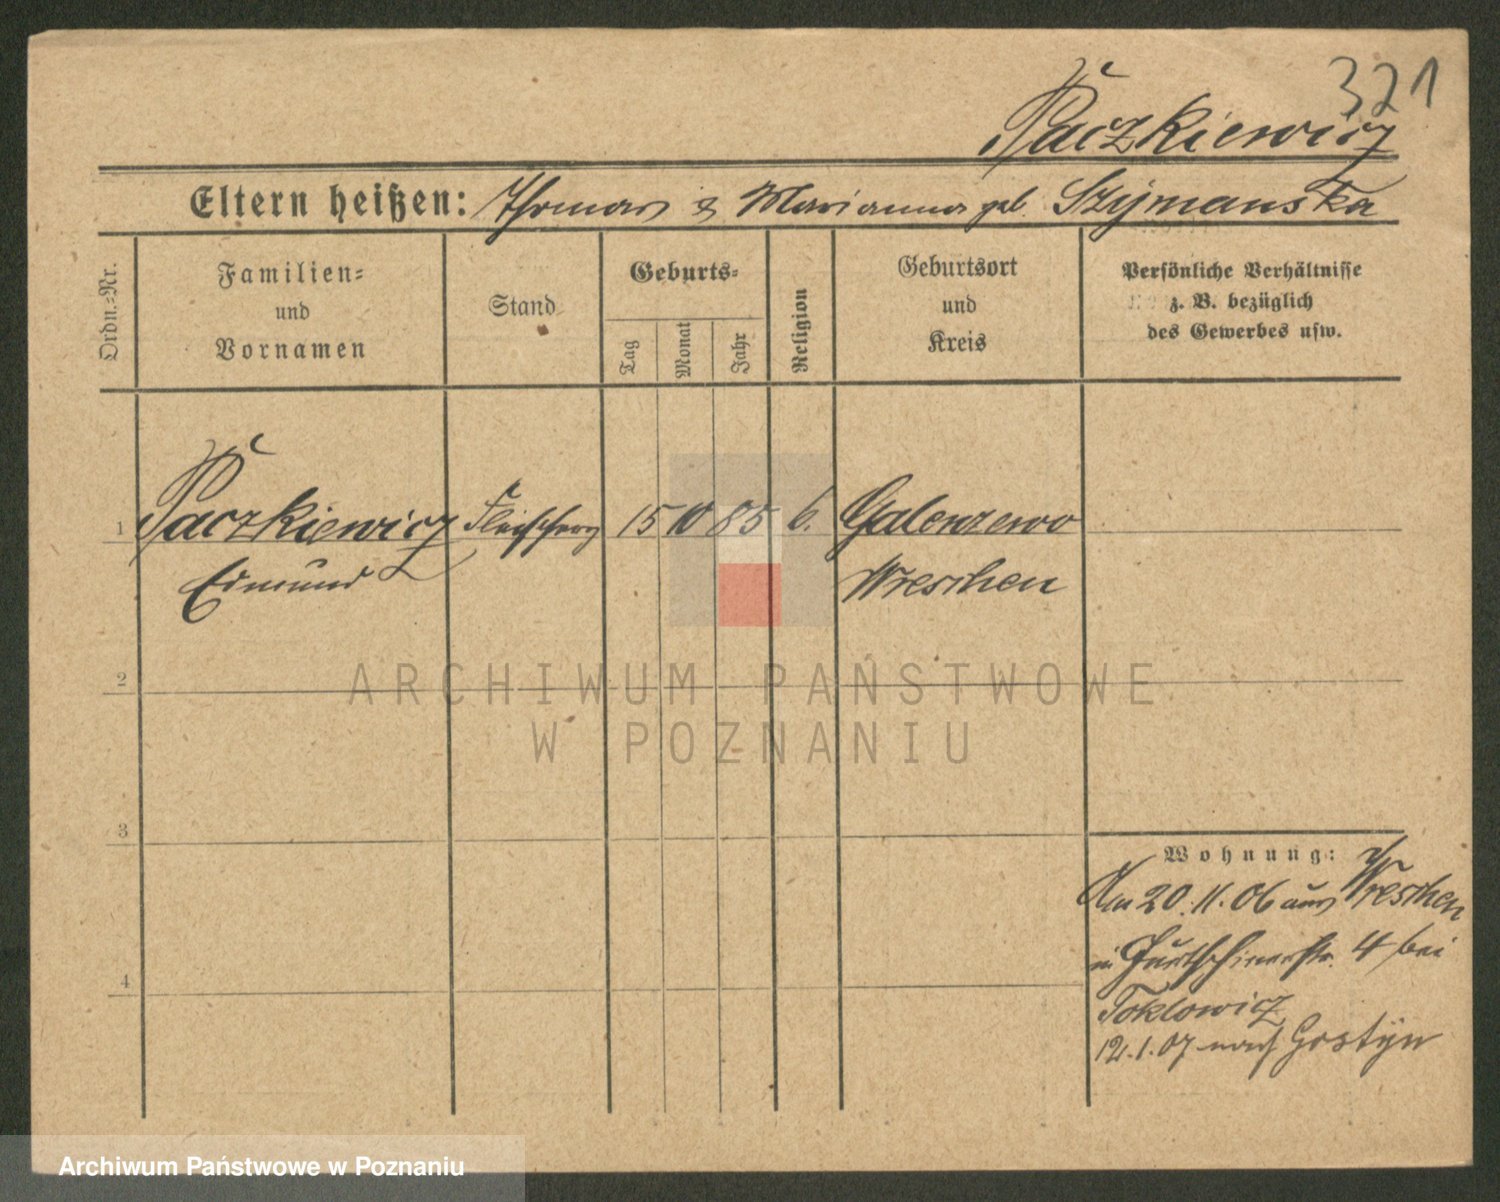 321
Paczkiewicz
Eltern heißen: Thomas & Marianna geb. Szymanska
Ordn.=Nr.
Familien=
und
Vornamen
Stand
Geburts=
Tag
Monat
Jahr
Religion
Geburtsort
und
Kreis
Persönliche Verhältnisse
z. B. bezüglich
des Gewerbes usw.
1 Paczkiewicz 15 10 85 Galenzewo
Edmund Wreschen
2
ARCHIWUM PAŃSTWOWE
W POZNANIU
3
Wohnung:
Am 20.11.06 aus Wreschen
in 4 bei
4
Toklowicz
12.1.07 nach Gostyn
Archiwum Państwowe w Poznaniu